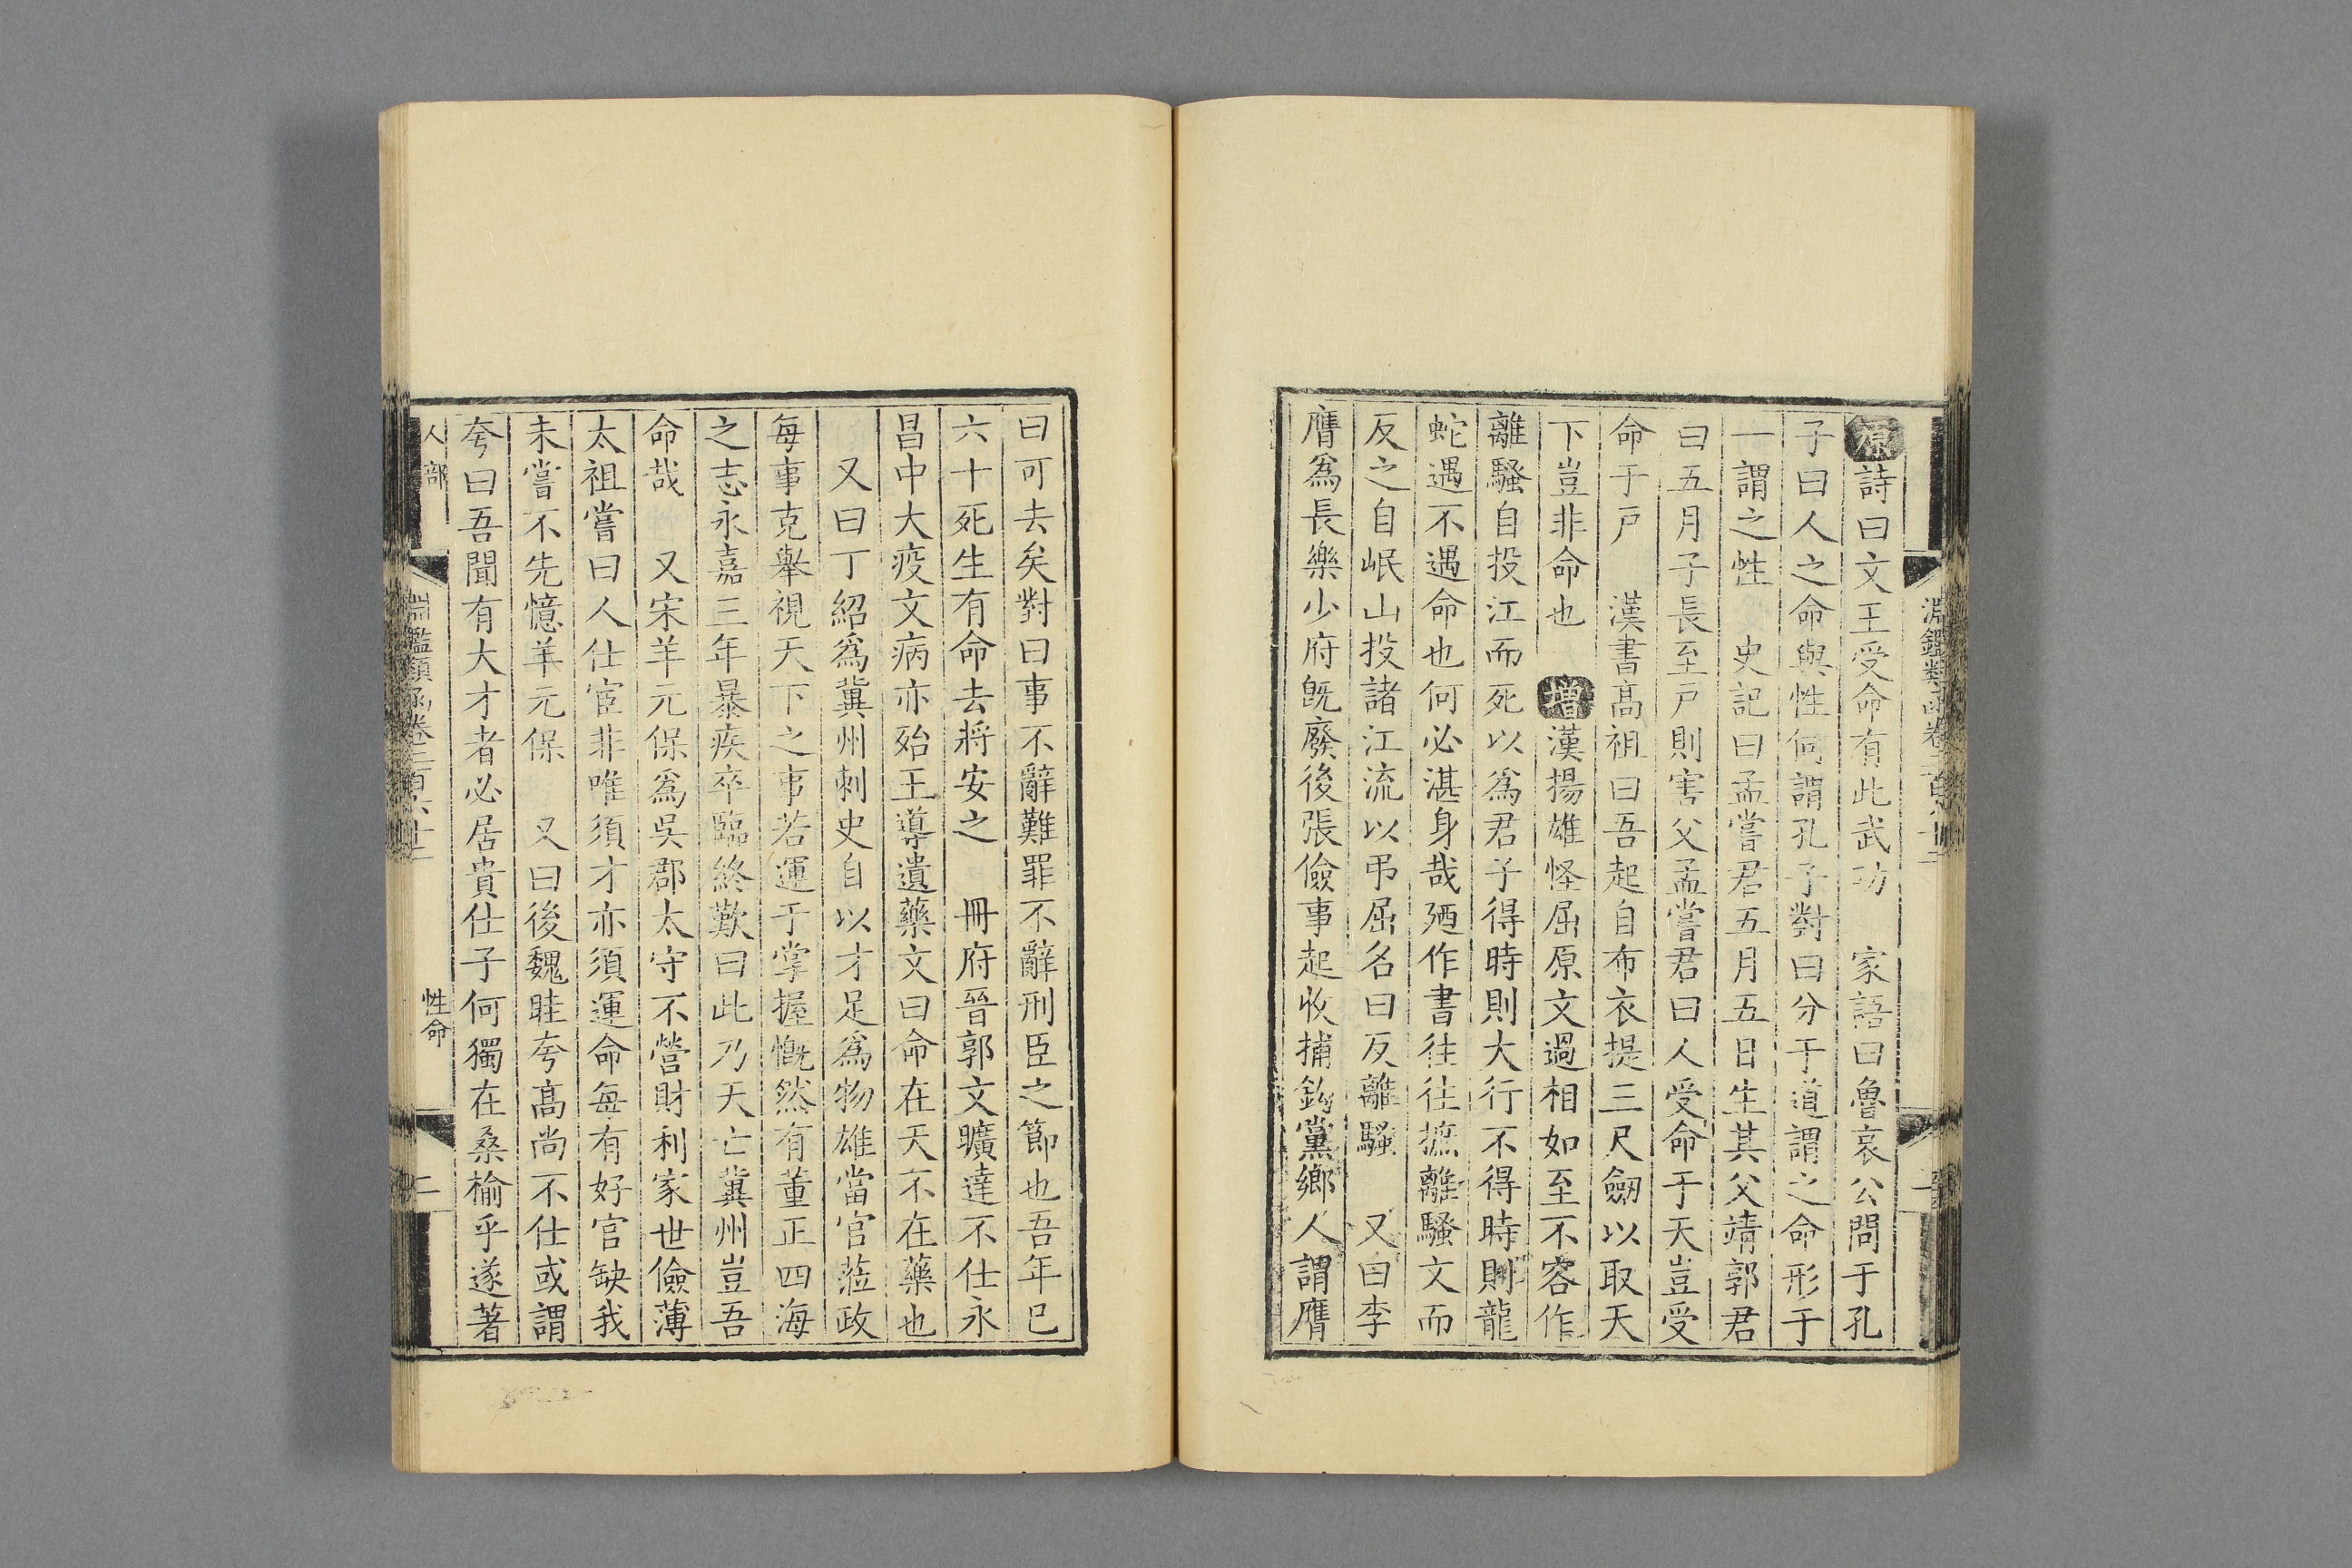 原詩曰文王受命有此武功　家語曰魯哀公問于孔
子曰人之命與性何謂孔子對曰分于道謂之命形于
一謂之性　史記曰孟嘗君五月五日生其父靖郭君
曰五月子長至戸則害父孟嘗君曰人受命于天豈受
命于戸　漢書高祖曰吾起自布衣提三尺劒以取天
下豈非命也　增漢揚雄怪屈原文過相如至不容作
離騷自投江而死以爲君子得時則大行不得時則龍
蛇遇不遇命也何必湛身哉廼作書往往摭離騷文而
反之自岷山投諸江流以弔屈名曰反離騷　又曰李
膺爲長樂少府旣廢後張儉事起收捕鈎黨鄉人謂膺
曰可去矣對曰事不辭難罪不辭刑臣之節也吾年已
六十死生有命去將安之　冊府晉郭文曠達不仕永
昌中大疫文病亦殆王導遺藥文曰命在天不在藥也
又曰丁紹爲冀州刺史自以才足爲物雄當官蒞政
每事克舉視天下之事若運于掌握慨然有董正四海
之志永嘉三年暴疾卒臨終歎曰此乃天亡冀州豈吾
命哉　又宋羊元保爲吳郡太守不營財利家世儉薄
太祖嘗曰人仕宦非唯須才亦須運命每有好官缺我
未嘗不先憶羊元保　又曰後魏眭夸高尚不仕或謂
夸曰吾聞有大才者必居貴仕子何獨在桑榆乎遂著
人部
淵鑑類函卷
性命
二